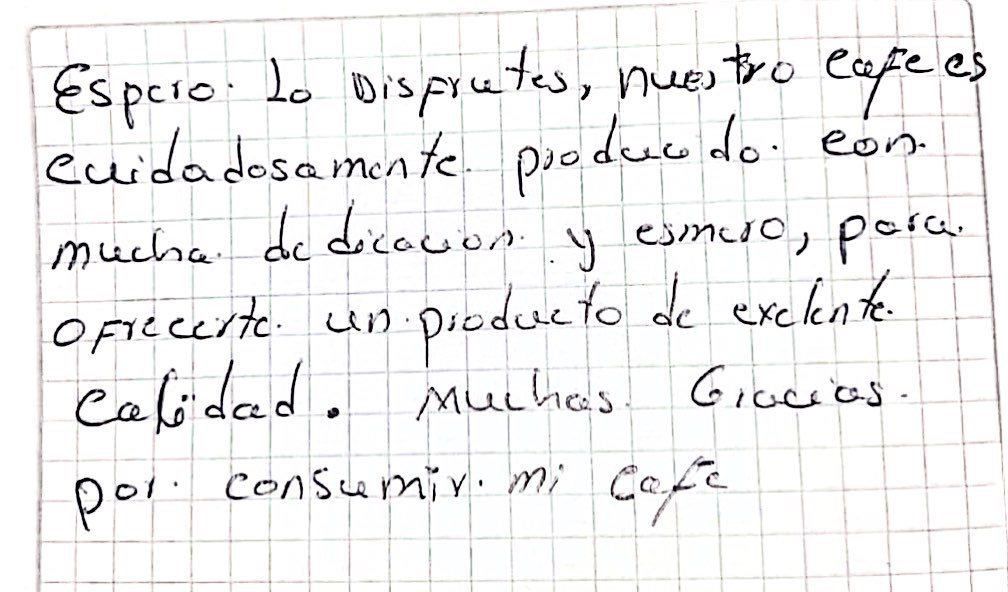 Espero. Lo Disfrutes, nuestro cafe es
cuidadosamente. producido. con.
mucha. dedicacion. y esmero, para.
ofrecerte. un. producto de exelente.
Calidad. Muchas. Gracias.
por. consumir. mi cafe